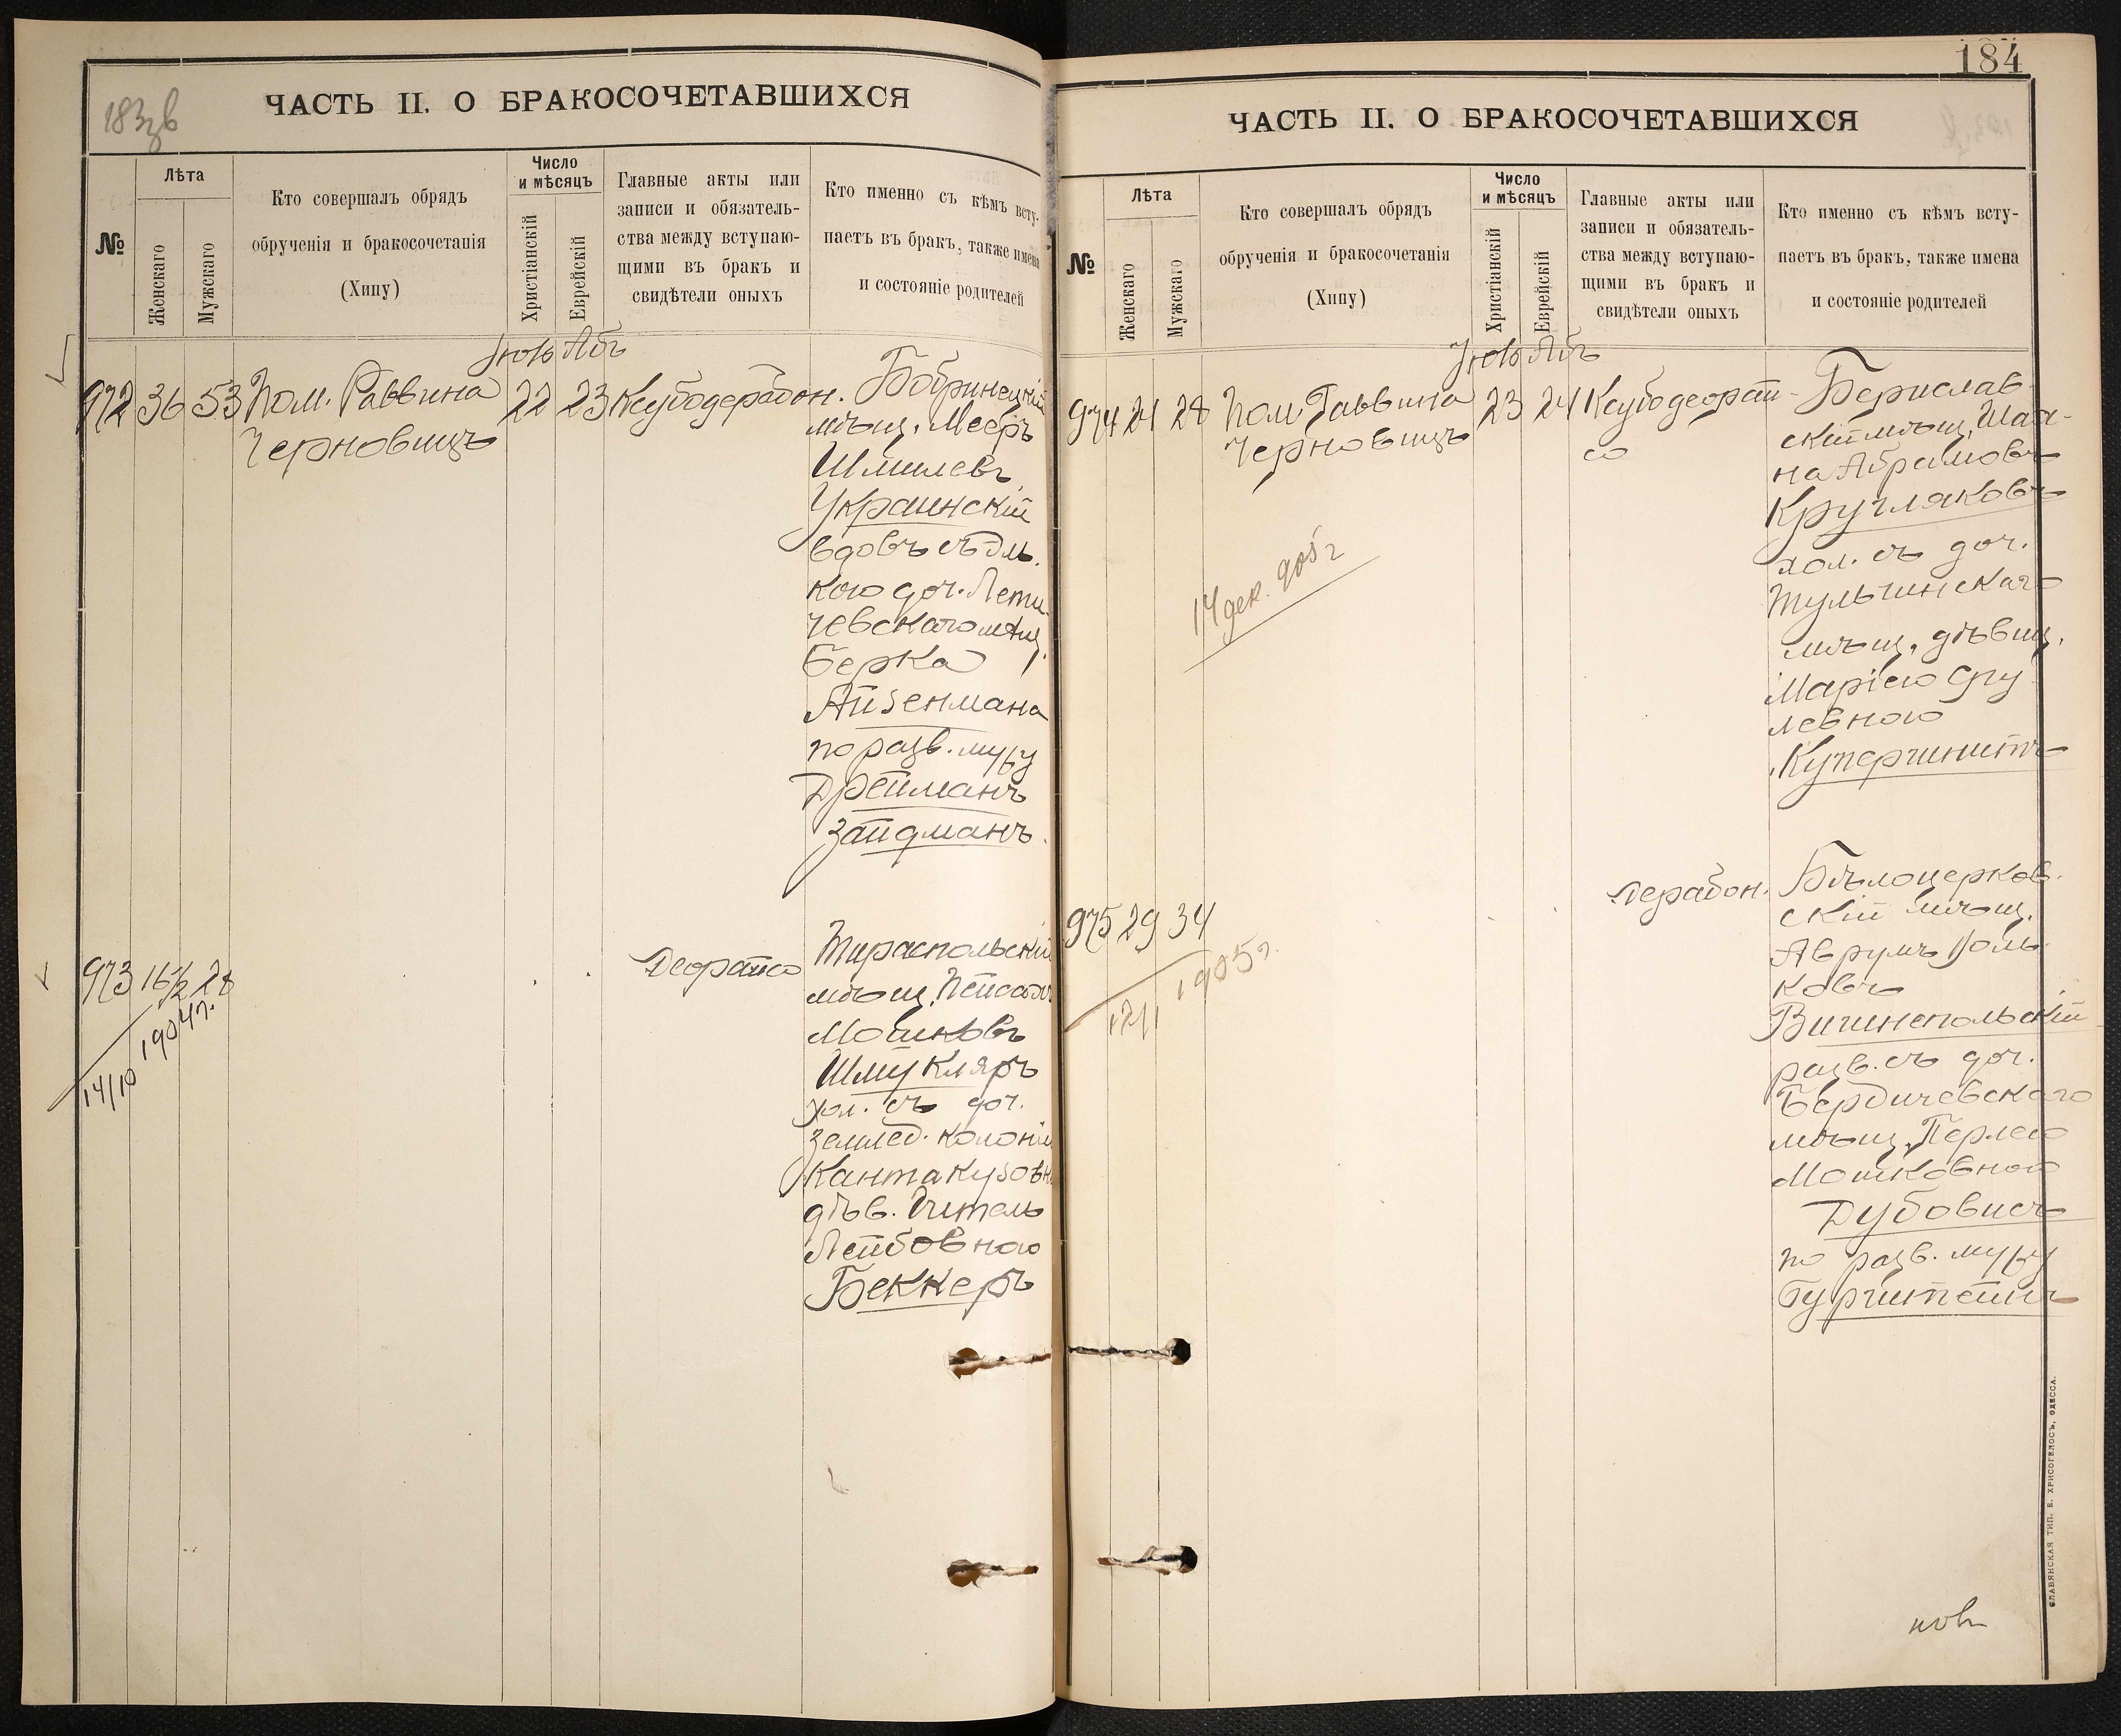 183зв
ЧАСТЬ II. О БРАКОСОЧЕТАВШИХСЯ
№
Лѣта
Женскаго
Мужскаго
Кто совершалъ обрядъ
обрученія и бракосочетанія
(Хипу)
Число
и мѣсяцъ
Христіанскій
Еврейскій
Главные акты или
записи и обязатель-
ства между вступаю-
щими въ бракъ и
свидѣтели оныхъ
Кто именно съ кѣмъ всту-
паетъ въ бракъ, также имена
и состояніе родителей
Іюль Абъ
972 36 53 Пом. Раввина 22 23 Ксубодерабон.
Черновицъ
Бобринецкій
мѣщ. Мееръ
Шмилевъ
Украинскій
вдовъ съ
кою доч. Лети-
чевскаго мѣщ.
Берка
Айзенмана
по разв. мужу
Дрейманъ
Зайдманъ.
973 16½ 28
14/10 1904г.
Деорайсо
Тираспольскій
мѣщ. Пейсахъ
Мошковъ
Шмукляръ
хол. съ доч.
землед. колоніи
Кантакузовки
дѣв. Гитель
Лейбовною
Беккеръ
184
ЧАСТЬ II. О БРАКОСОЧЕТАВШИХСЯ
№
Лѣта
Женскаго
Мужскаго
Кто совершалъ обрядъ
обрученія и бракосочетанія
(Хипу)
Число
и мѣсяцъ
Христіанскій
Еврейскій
Главные акты или
записи и обязатель-
ства между вступаю-
щими въ бракъ и
свидѣтели оныхъ
Кто именно съ кѣмъ всту-
паетъ въ бракъ, также имена
и состояніе родителей
Іюль Абъ
974 21 28 Пом. Раввина 23 24 Ксубодеорай-
Черновицъ
со
14 дек. 905 г
Берислав-
скій мѣщ. Шая-
на Абрамовъ
Кругляковъ
хол. съ доч.
Тульчинскаго
мѣщ. дѣвиц.
Маріею Сру
левною
Купершмитъ
975 29 34
12/1 1905г.
Дерабон.
Бѣлоцерков-
скій мѣщ.
Аврумъ Воль-
ковъ
Вичинепольскій
разв. съ доч.
Бердичевскаго
мѣщ. Перлею
Мошковною
Дубовисъ
по разв. мужу
Бурштейнъ
СЛАВЯНСКАЯ ТИП. Е. ХРИСОГЕЛОСЪ, ОДЕССА.